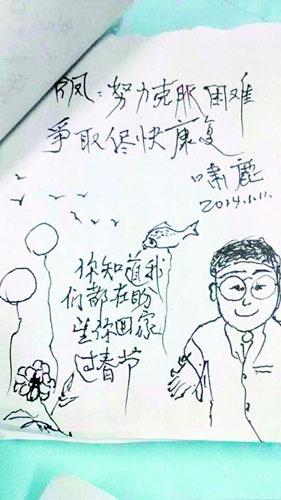 凤：努力克服困难
争取侭快康复
啸
2014.1.11.
你知道我
们都在盼
望你回家
过春节